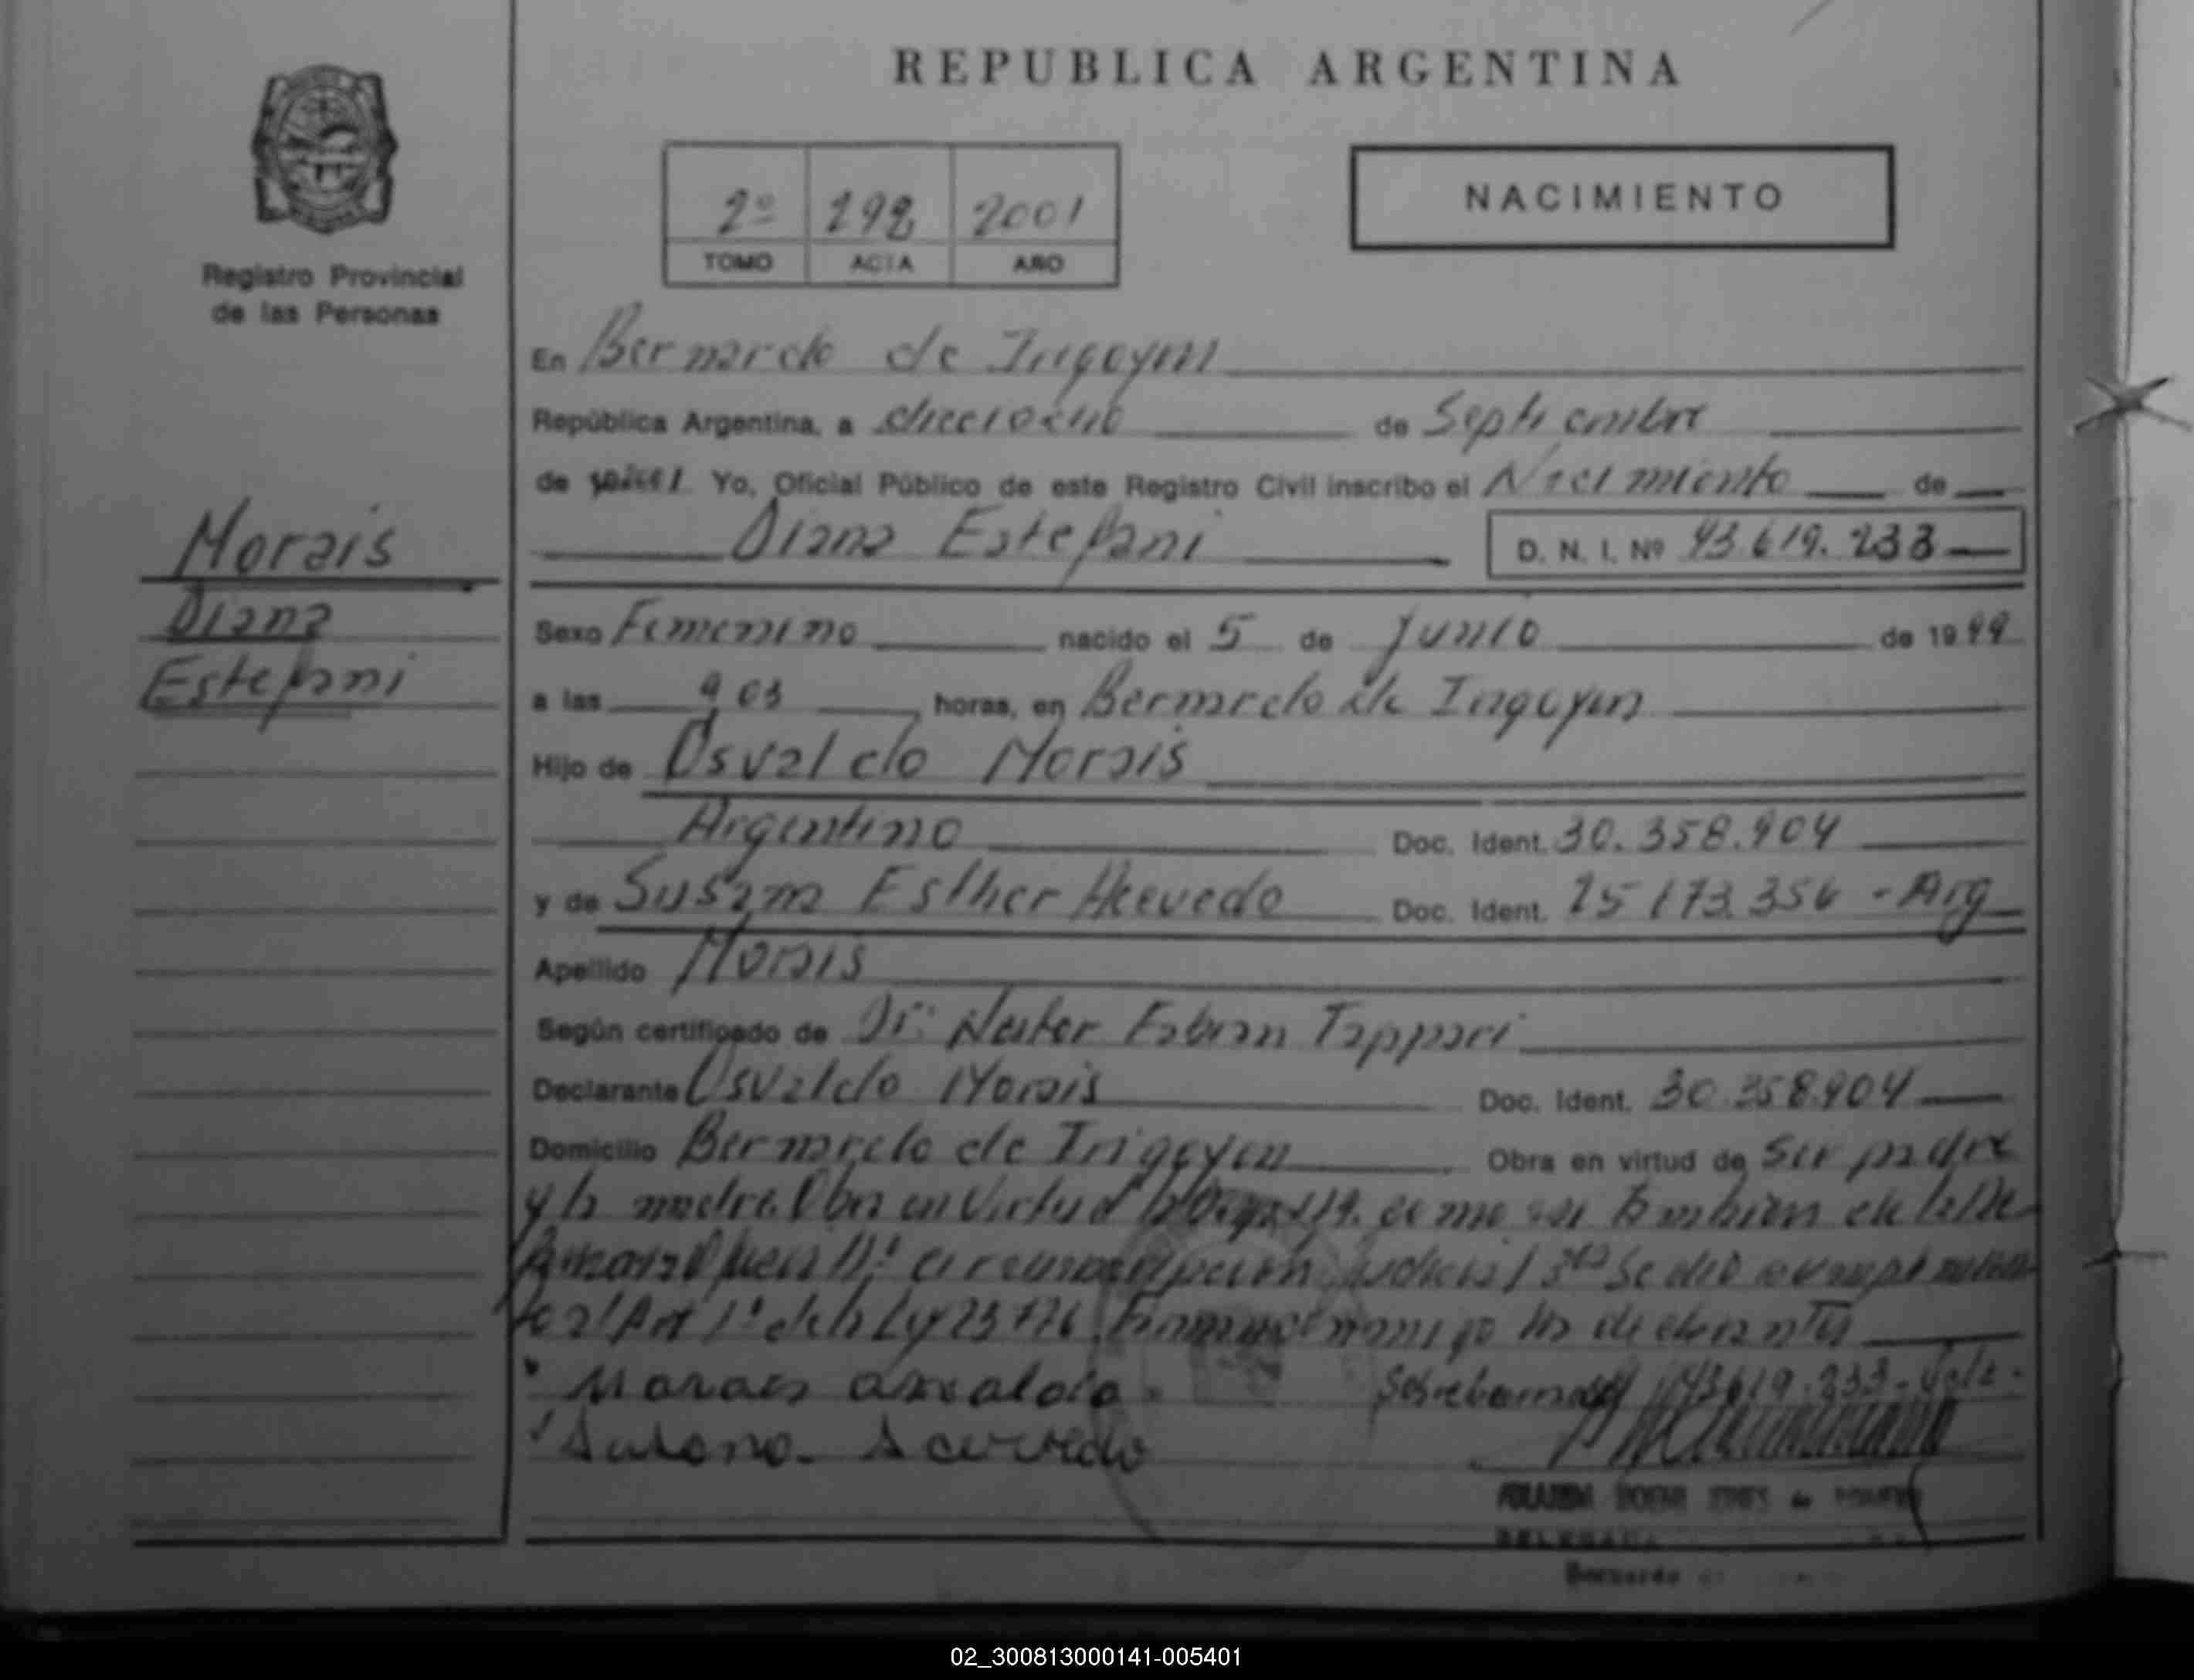 REPUBLICA ARGENTINA
2º 292 2001
TOMO ACTA AÑO
NACIMIENTO
Registro Provincial
de las Personas
En Bernardo de Irigoyen
República Argentina, a dieciocho de Septiembre
de Yo, Oficial Público de este Registro Civil inscribo el Nacimiento de
Diana Estefani D. N. I. Nº 43.619.233
Morais
Diana
Estefani
Sexo Femenino nacido el 5 de Junio de 1999
a las 9 03 horas, en Bernardo de Irigoyen
Hijo de Osvaldo Morais
Argentino Doc. Ident. 30.358.904
y de Susana Esther Acevedo Doc. Ident. 25 173.356 - Arg
Apellido Morais
Según certificado de Dr. Nestor Fabian Tappari
Declarante Osvaldo Morais Doc. Ident. 30.358.904
Domicilio Bernardo de Irigoyen Obra en virtud de ser padre
y la madre. Obra en Virtud como también
circunscripción judicial 3ra
al Art 1º de la Ley 23 776 los declarantes
Morais osvaldo Sobreborrado 43619.233 - Vale -
Susana Acevedo
Bernardo
02_300813000141-005401